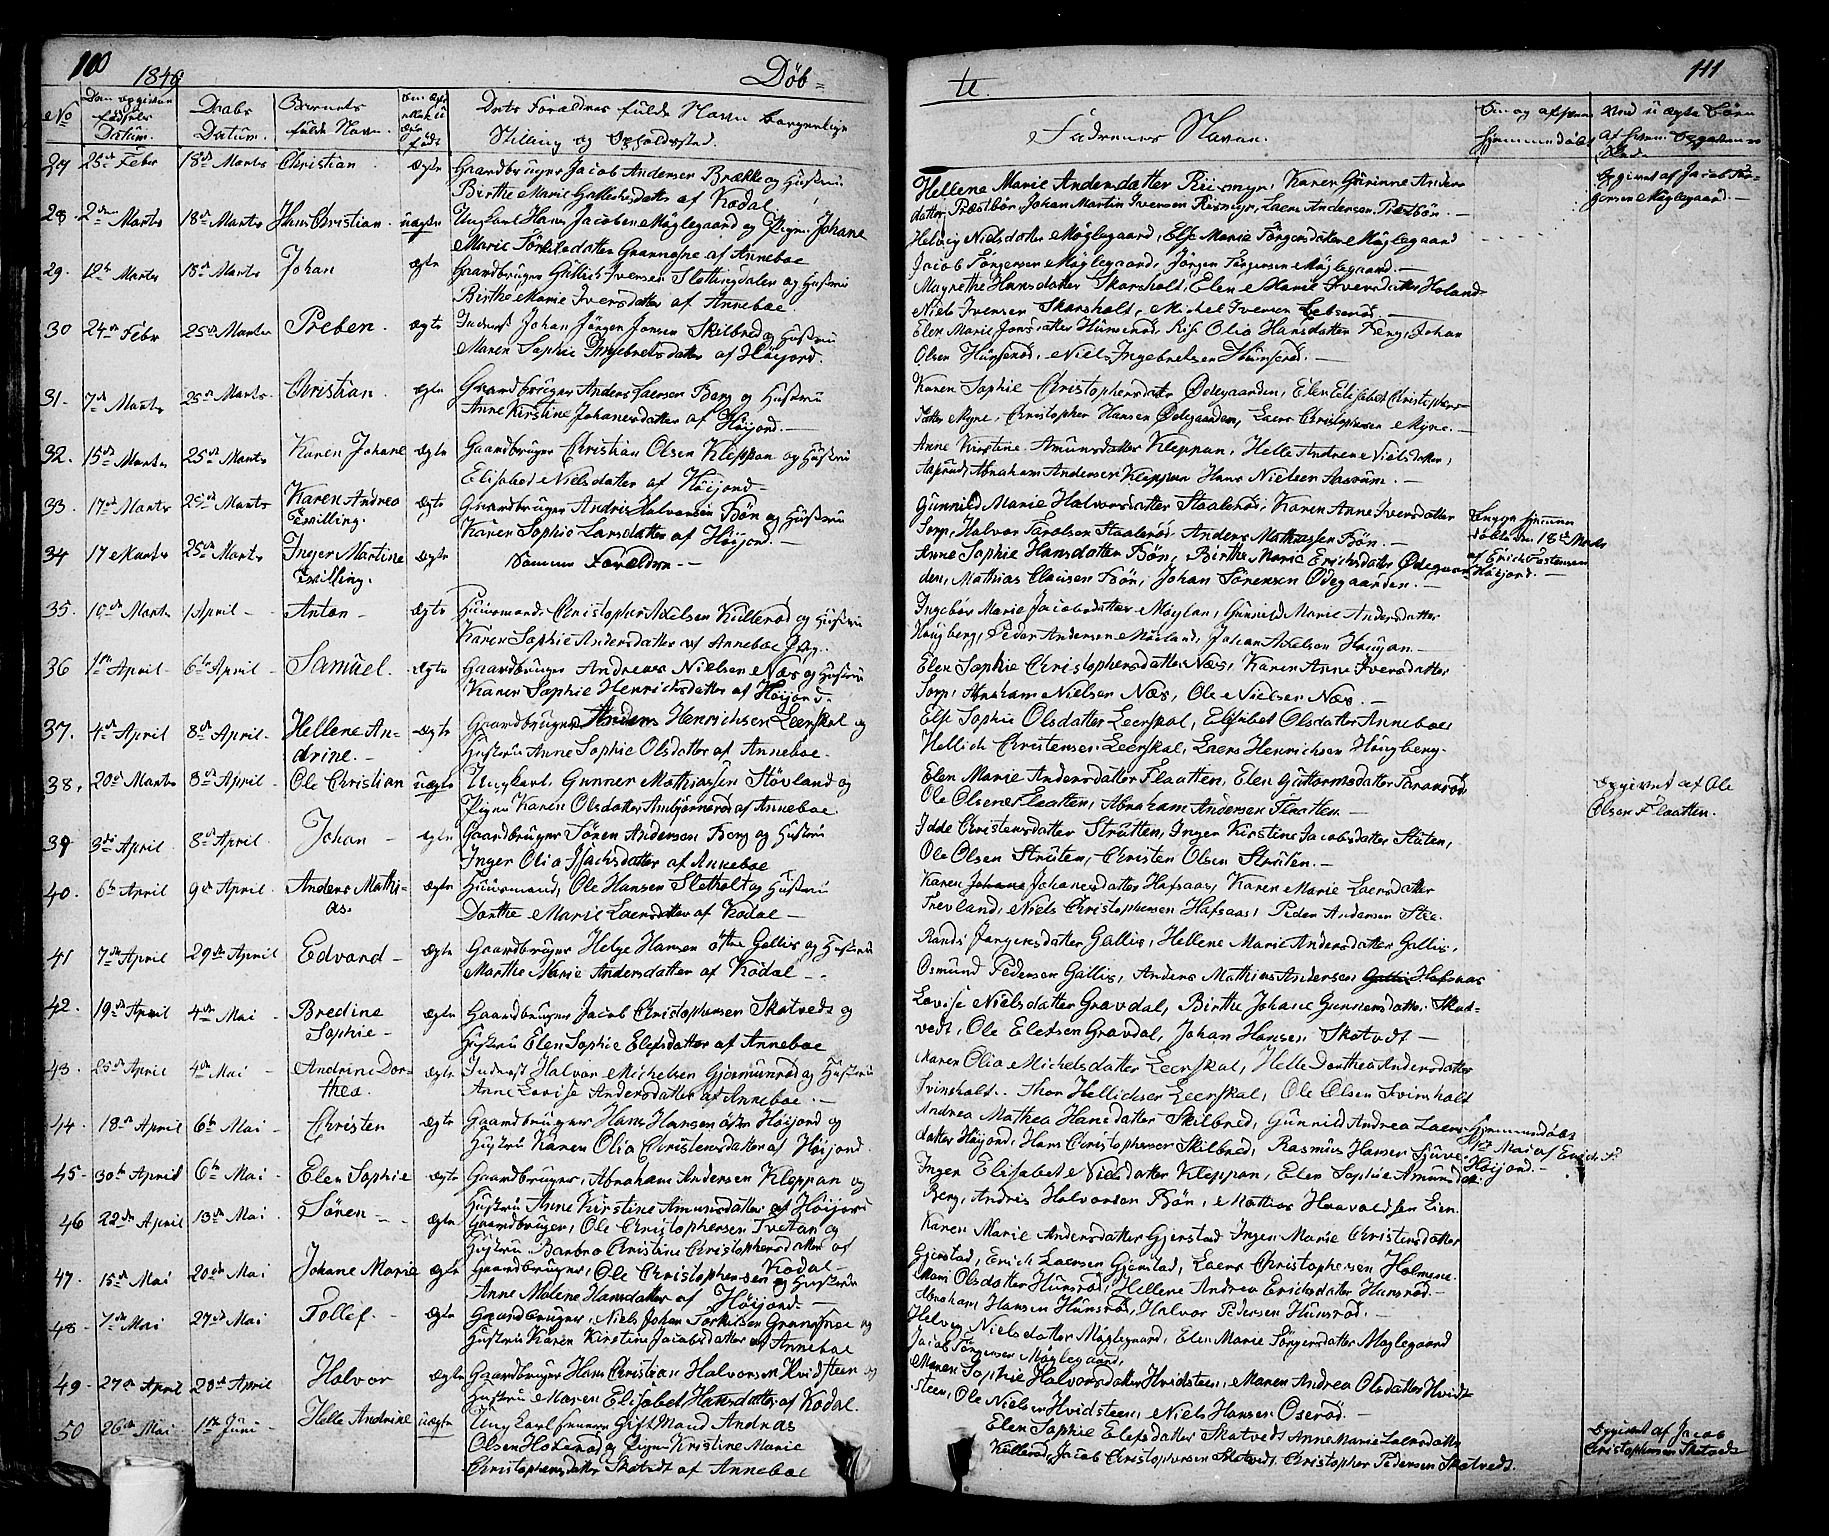 100
1849
Døb=
No
Datum.
Daabs
Datum.
Barnets
fulde Navn.
Dets Forældres fulde Navn borgerlige
Stilling og Opholdssted.
28de Febr 18de Marts Christian ægte Gaardbruger Jacob Andersen Brække og Hustru
Birthe Marie af Kodal.
28. 2den Marts 18de Marts Hans Christian uægte Ungkarl Hans Jacobsen Møglegaard og Pigen Johane
Marie af Anneboe
29. 12te Marts 18de Marts Johan ægte Gaardbruger Iversen og Hustru
Birthe Marie Iversdatter af Anneboe.
30 24de Febr 25de Marts Preben. ægte Inderst Johan Jørgen Jonsen Skilbred og Hustru
Maren Sophie Ingebretsdatter af Høijord.
31. 7de Marts 25de Marts Christian. ægte Gaardbruger Anders Laersen Berg og Hustru
Anne Kirstine Johanesdatter af Høijord.
32. 15de Marts 25de Marts Karen Johane ægte Gaardbruger Christian Olsen Kleppan og Hustru
Elisabed Nielsdatter af Høijord
33. 17de Marts 25de Marts Karen Andrea ægte Gaardbruger Andris Halvorsen Bøn og Hustru
Tvilling. Karen Sophie Larsdatter af Høijord.
34 17 Marts 25de Marts Inger Martine ægte Samme Forældre
Tvilling.
35. 10de Marts 1 April Anton ægte Huusmand Christopher Axelsen Kullerød og Hustru
Karen Sophie Andersdatter af Anneboe
36 1ste April 6te April Samuel. ægte Gaardbruger Andreas Nielsen Næs og Hustru
Karen Sophie Henrichsdatter af Høijord.
37. 4de April 8de April Hellene An- ægte Gaardbruger Anders Henrichsen Leerskal og
drine. Hustru Anne Sophie Olsdatter af Anneboe
38. 20de Marts 8de April Ole Christian uægte Ungkarl Gunner Mathiassen Støvland og
Pigen Karen Olsdatter Ambjørnerød af Anneboe
39 3die April 8de April Johan ægte Gaardbruger Søren Andersen Berg og Hustru
Inger Olia Isachsdatter af Anneboe
40. 6te April 9de April Anders Mathi- ægte Huusmand, Ole Hansen Sletholt og Hustru
as. Dorthe Marie Laersdatter af Kodal
41 7de April 29de April Edvard ægte Gaardbruger Helge Hansen Gallis og Hustru
Marthe Marie Andersdatter af Kodal
42. 19de April 4de Mai Bredine ægte Gaardbruger Jacob Christophersen Skatvedt og
Sophie Hustru Elen Sophie Elefsdatter af Anneboe
43. 25de April 4de Mai Andrini Dor- ægte Inderst Halvor Michelsen Gjermunrød og Hustru
thea. Anne Lovise Andersdatter af Anneboe.
44. 18de April 6te Mai Christen ægte Gaardbruger Hans Hansen øster Høijord og
Hustru Karen Olia Christensdatter af Høijord.
45. 30te April 6te Mai Elen Sophie ægte Gaardbruger, Abraham Andersen Kleppan og
Hustru Anne Kirstine Amunsdatter af Høijord
46 22de April 13de Mai Søren ægte Gaardbruger, Ole Christophersen Tvetan og
Hustru Barbro Christine Christophersdatter af
Kodal
47. 15de Mai 20de Mai Johane Marie ægte Gaardbruger, Ole Christophersen og Hustru
Anne Malene Hansdatter af Høijord.
48. 7de Mai 27de Mai Tollef. ægte Gaardbruger, Niels Johan Torkilsen og
Hustru Karen Kirstine Jacobsdatter af Anneboe
49 27de April 28de April Halvor ægte Gaardbruger Hans Christian Halvorsen Hvidsteen og
Hustru Maren Elisabet Hansdatter af Kodal.
50 26de Mai 1ste Juni Helle Andrine uægte Ungkarl Gift Mand Andreas
Olsen og Pigen Kristine Marie
Christophersdatter Skatvedt af Anneboe
te.
111
Faderenes Navne.
Hellene Marie Andersdatter Riismyr, Karen Gurinne Anders
datter Præstbøn, Johan Martin Iversen Riismyr, Laers Andersen Præstbøn.
Opgivet af Jacob Jør-
gensen Møglegaard.
Helvig Nielsdatter Møglegaard, Else Marie Jørgensdatter Møglegaard
Jacob Jørgensen Møglegaard, Jørgen Jørgensen Møglegaard.
Magrethe Hansdatter Skarsholt, Elen Marie Iversdatter Holand
Niels Iversen Skarsholt, Michel Iversen
Elen Marie Jonsdatter Hunserød, Olia Hansdatter Berg, Johan
Olsen Hunserød, Niels Ingebretsen Hunserød.
Karen Sophie Christophersdatter Ødegaarden, Elen Elisabet Christophers-
datter Myre, Christopher Hansen Ødegaarden, Laers Christophersen Myre.
Anne Kirstine Amunsdatter Kleppan, Helle Andrene Nielsdatter,
Aasrum, Abraham Andersen Kleppan Hans Nielsen Aasrum.
Gunnild Marie Halvorsdatter Staalerød, Karen Anne Iversdatter
Sorp, Halvor Staalerød Anders Mathiassen Bøn.
Anne Sophie Hansdatter Bøn, Birthe Marie Erichsdatter Ødegaar-
den, Mathias Clausen Bøn, Johan Sørensen Ødegaarden.
18de Marts
af Erich Tostensen
Høijord.
Ingebor Marie Jacobsdatter Møyland, Gunnild Marie Andersdatter
Hougberg, Peder Andersen Møyland, Johan Axelsen
Elen Sophie Christophersdatter Næs, Karen Anne Iversdatter
Sorp, Abraham Nielsen Næs, Ole Nielsen Næs.
Else Sophie Olsdatter Leerskal, Elisabet Olsdatter Anneboe
Hellich Christensen Leerskal, Laers Henrichsen Hougberg.
Elen Marie Andersdatter Flaatten, Elen Guttormsdatter
Ole Olsen Flaatten, Abraham Andersen Flaatten.
Opgivet af Ole
Olsen Flaatten.
Idde Christensdatter Strutten, Inger Kirstine Jacobsdatter
Ole Olsen Struten, Christen Olsen Struten.
Karen Johane Johanesdatter Hafsaas, Karen Marie Laersdatter
Trevland, Niels Christophersen Hafsaas, Peder Andersen Stee
Randi Jørgensdatter Gallis, Hellene Marie Andersdatter Gallis,
Osmund Pedersen Gallis, Anders Mathias Andersen Gallis Hafsaas
Lovise Nielsdatter Gravdal, Birthe Johane Gunnersdatter Skat-
vedt, Ole Elefsen Gravdal, Johan Hansen Skatvedt
Karen Olia Michelsdatter Leerskal, Helle Dorthea Andersdatter
Svinholt. Thor Hellichsen Leerskal, Ole Olsen Svinholt
Andrea Mathea Hansdatter Skilbred, Gunnild Andrea Laers-
datter Høijord, Hans Christophersen Skilbred, Rasmus Hansen
Hjemmedøbt
1ste Mai af Erich
Høijord.
Inger Elisabet Nielsdatter Kleppan, Elen Sophie Amunsdatter
Berg, Andris Halvorsen Bøn, Mathias Haavaldsen Eien.
Karen Marie Andersdatter Gjerstad Inger Marie Christensdatter
Gjerstad, Erich Laersen Gjerstad, Laers Christophersen Holmene.
Mari Olsdatter Hunsrød, Hellene Andrea Erichsdatter Hunsrød.
Abraham Hansen Hunsrød, Halvor Pedersen Hunsrød.
Helvig Nielsdatter Møglegaard, Elen Marie Jørgensdatter Møglegaard
Jacob Jørgensen Møglegaard,
Maren Sophie Halvorsdatter Hvidsteen, Maren Andrea Olsdatter Hvidt-
steen, Ole Nielsen Hvidsteen, Niels Hansen Oserød.
Elen Sophie Elefsdatter Skatvedt Anne Marie Laersdatter
Kullerød, Jacob Christophersen Skatvedt, Christopher Pedersen Skatvedt.
Opgivet af Jacob
Christophersen Skatvedt